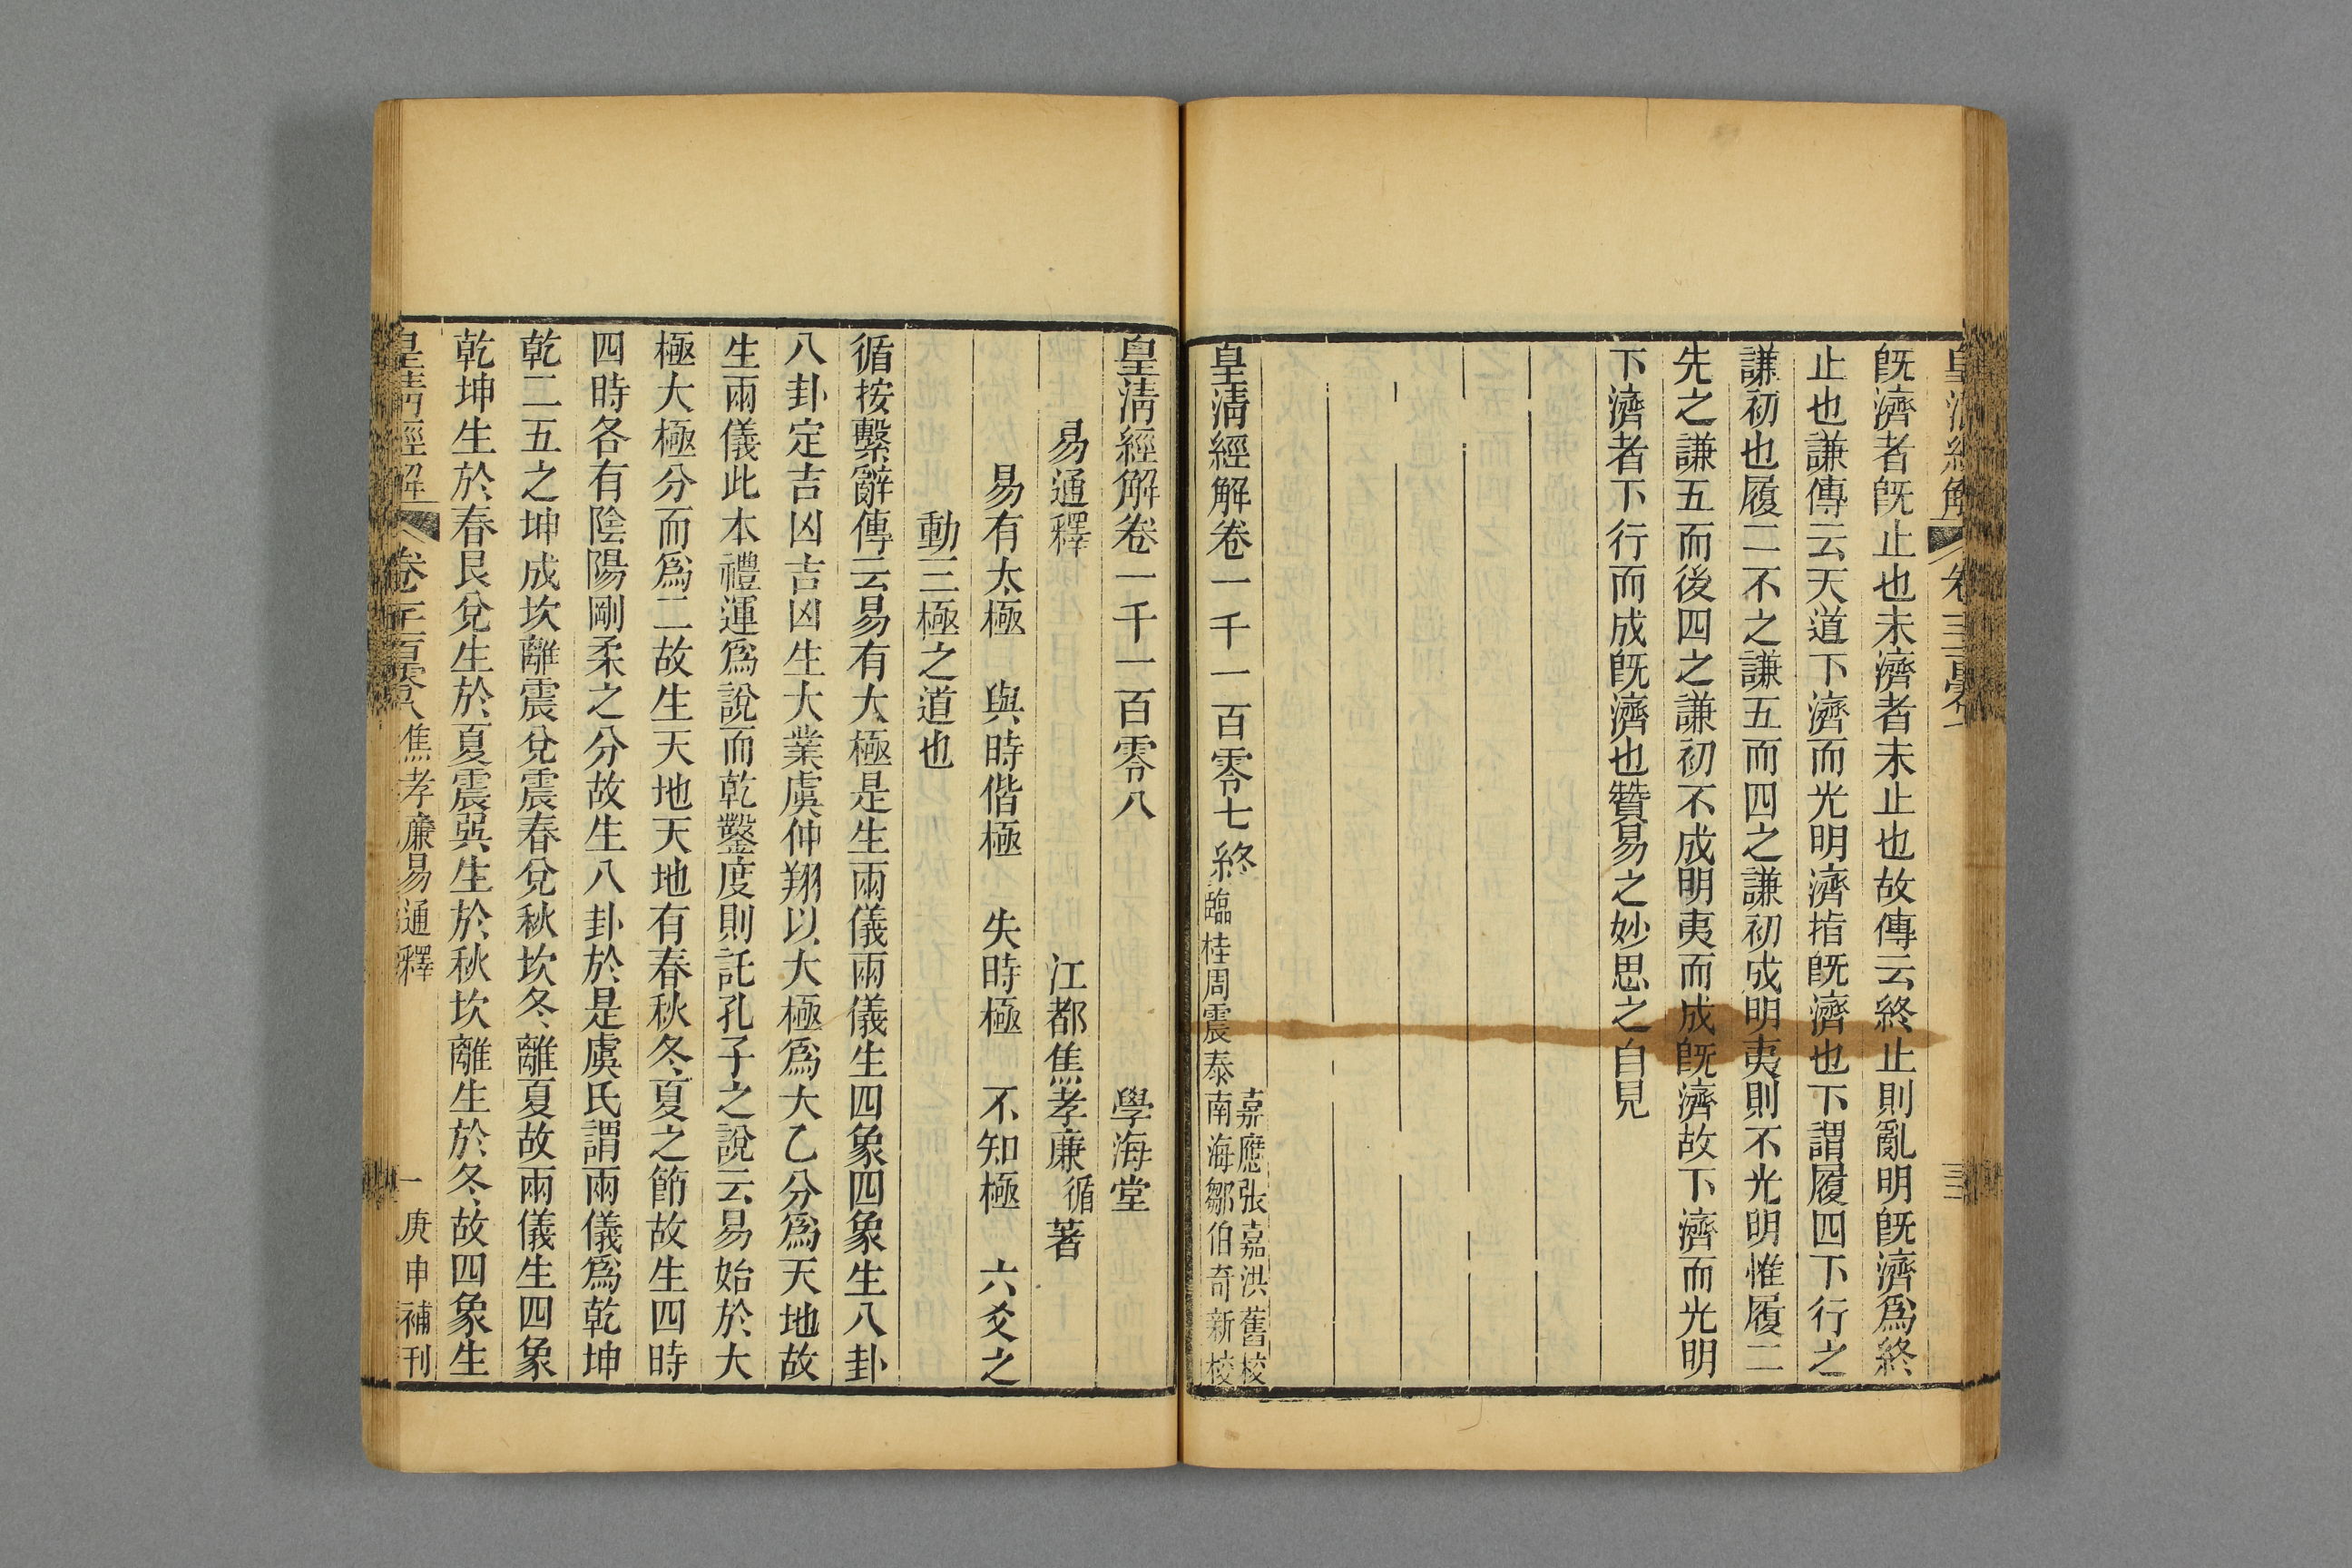 既濟者既止也未濟者未止也故傳云終止則亂明既濟爲終
止也謙傳云天道下濟而光明濟指既濟也下謂履四下行之
謙初也履二不之謙五而四之謙初成明夷則不光明惟履二
先之謙五而後四之謙初不成明夷而成既濟故下濟而光明
下濟者下行而成既濟也贊易之妙思之自見
皇淸經解卷一千一百零七終
嘉應張嘉洪舊校
臨桂周震泰南海鄒伯奇新校
皇淸經解卷一千一百零八 學海堂
易通釋 江都焦孝廉循著
易有太極 與時偕極 失時極 不知極 六爻之
動三極之道也
循按繫辭傳云易有大極是生兩儀兩儀生四象四象生八卦
八卦定吉凶吉凶生大業虞仲翔以大極爲大乙分爲天地故
生兩儀此本禮運爲說而乾鑿度則託孔子之說云易始於大
極大極分而爲二故生天地天地有春秋冬夏之節故生四時
四時各有陰陽剛柔之分故生八卦於是虞氏謂兩儀爲乾坤
乾二五之坤成坎離震兌震春兌秋坎冬離夏故兩儀生四象
乾坤生於春艮兌生於夏震巽生於秋坎離生於冬故四象生
皇淸經解 卷一千一百零八 焦孝廉易通釋 一 庚申補刊